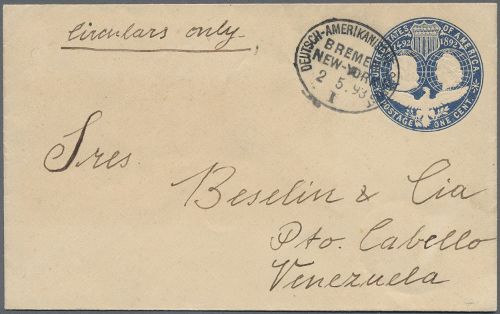 Circulars only.
DEUTSCH-AMERIKAN
BREME
NEW-YOR
2 5.93
I
UNITED STATES OF AMERICA
1492 1893
POSTAGE ONE CENT.
Sres.
Beselin & Cia
Pto. Cabello
Venezuela